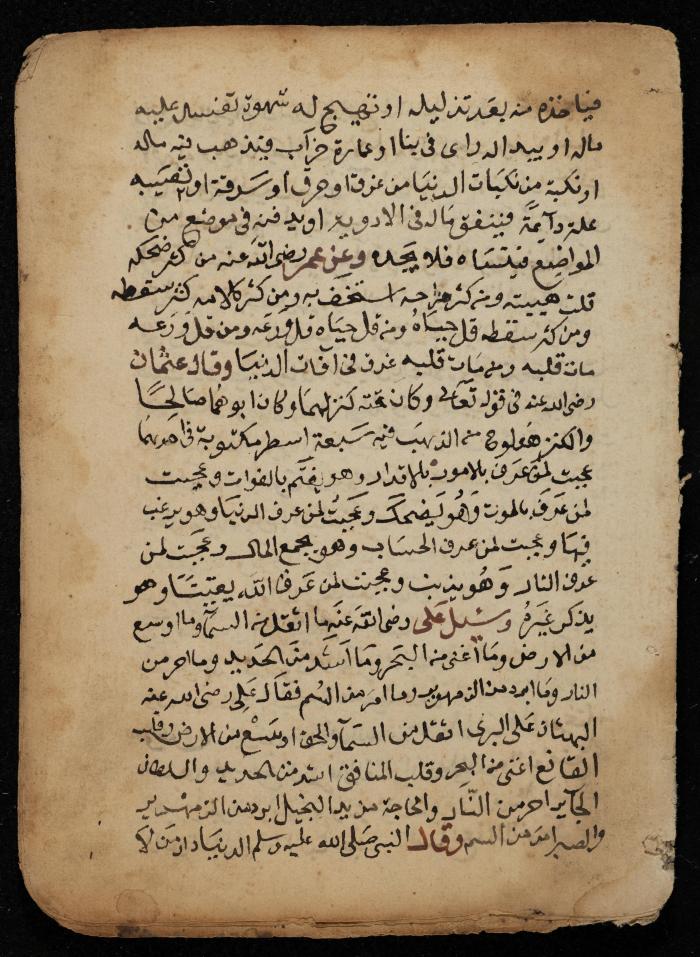 فياخذه منه بعد تذليله او تهيج له شهوة تفسد عليه
ماله او يبدا له راى فى بنا او عمارة خراب فيذهب فيه ماله
او نكبة من نكبات الدنيا من غرق او حرق او سرقة او تصيبه
علة دآيمة فينفق ماله فى الادوية او يدفنه فى موضع من
المواضع فينساه فلا يجده وعن عمر رضى الله عنه من كثر ضحكه
قلت هيبته ومن كثر مزاحه استخف به ومن كثر كلامه كثر سقطه
ومن كثر سقطه قل حيآه ومن قل حياه قل ورعه ومن قل ورعه
مات قلبه ومن مات قلبه غرق فى آفات الدنيا وقال عثمان
رضى الله عنه فى قوله تعالى وكان تحته كنز لهما وكان ابوهما صالحًا
والكنز هو لوح من الذهب فيه سبعة اسطر مكتوبة فى احدهما
عجبت لمن عرف بالامور بالاقدار وهو يغتم بالفوات وعجبت
لمن عرف بالموت وهو ليضحك وعجبت لمن عرف الدنيا وهو يرغب
فيها وعجبت لمن عرف الحساب وهو يجمع المال وعجبت لمن
عرف النار وهو يذنب وعجبت لمن عرف الله يقينًا وهو
يذكر غيره وسئل على رضى الله عنه ما اثقل من السمآ وما اوسع
من الارض وما اغنى من البحر وما اشد من الحديد وما احر من
النار وما ابرد من الزمهرير وما امر من السم فقال على رضى الله عنه
البهتان على البرى اثقل من السمآ والحق اوسع من الارض وقلب
القانع اغنى من البحر وقلب المنافق اشد من الحديد والسلطان
الجآير احر من النار والحاجة من يد البخيل ابرد من الزمهرير
والصبر امر من السم وقال النبى صلى الله عليه وسلم الدنيا دار من لا